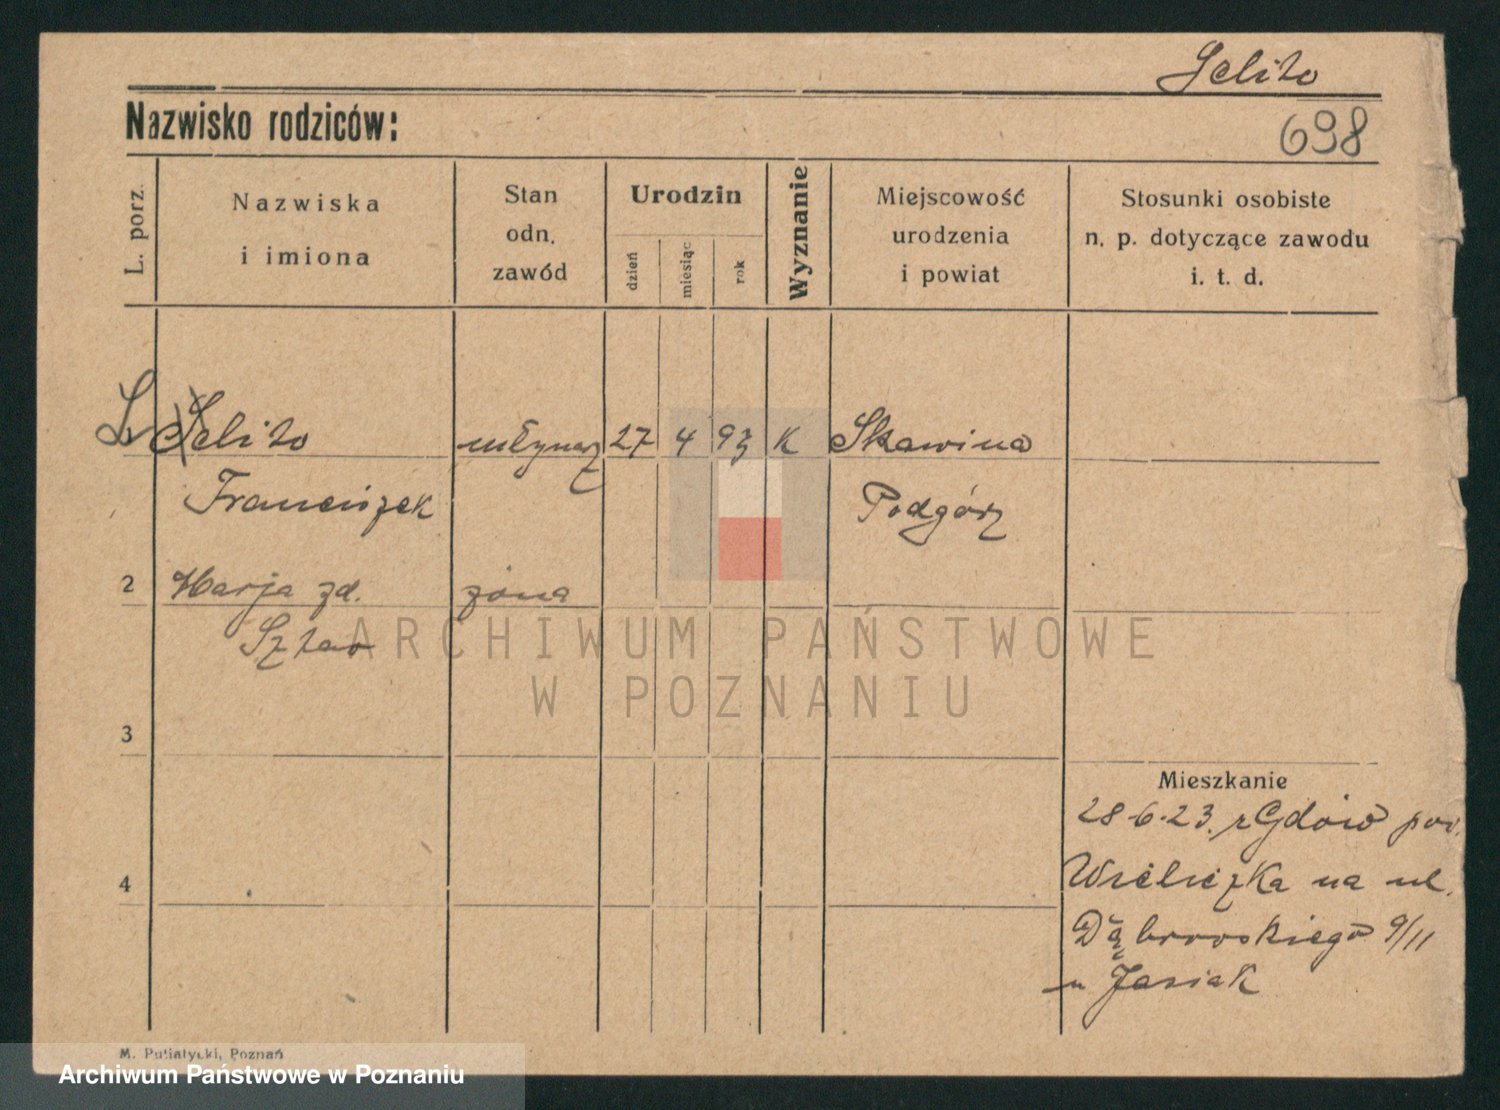 Selito
Nazwisko rodziców:
698
L. porz.
Nazwiska
i imiona
Stan
odn.
zawód
Urodzin
dzień
miesiąc
rok
Wyznanie
Miejscowość
urodzenia
i powiat
Stosunki osobiste
n. p. dotyczące zawodu
i. t. d.
Selito młynarz 27 4 93 K Skawina
Franciszek Podgórz
2 Marja zd. żona
ARCHIWUM PAŃSTWOWE
W POZNANIU
3
Mieszkanie
28-6-23. z Gdów pow.
4 Wieliczka na ul.
Dąbrowskiego 9/11
u Jasiak
M. Putiatycki, Poznań
Archiwum Państwowe w Poznaniu